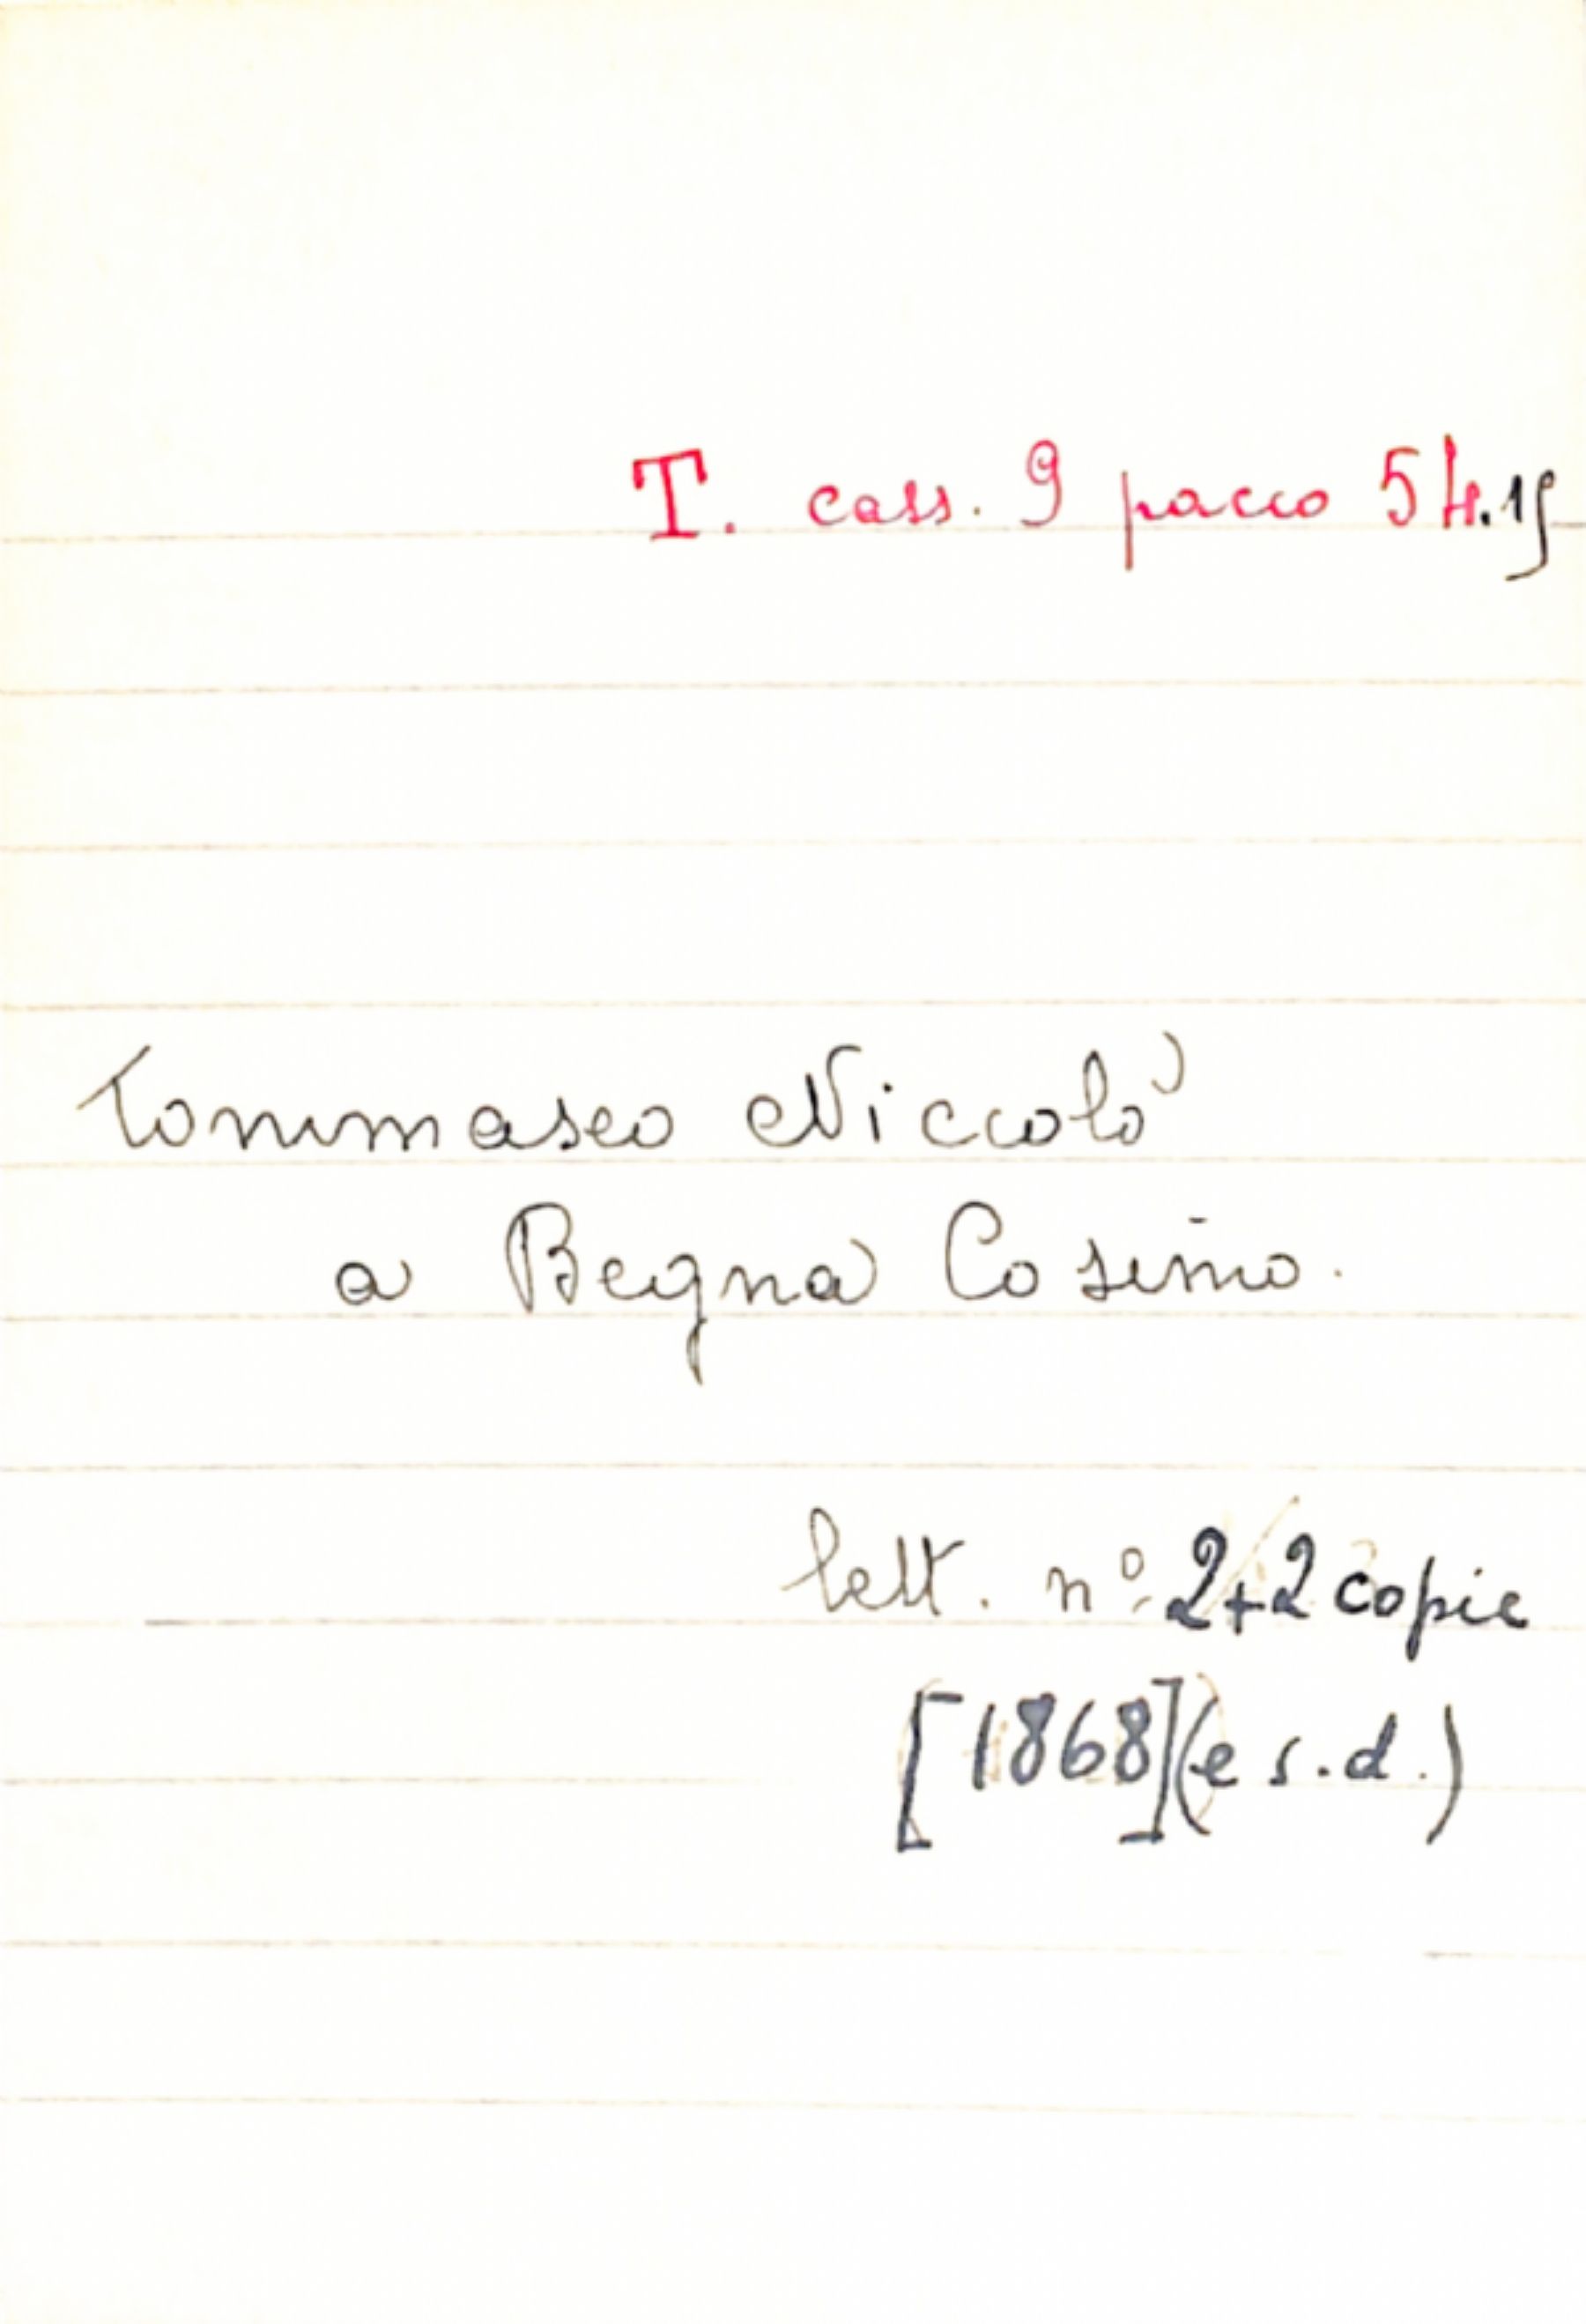 T. cass. 9 pacco 54.15
Tommaseo Niccolò
a Begna Cosimo.
lett. nº 2+2 copie
[1868](e s.d.)